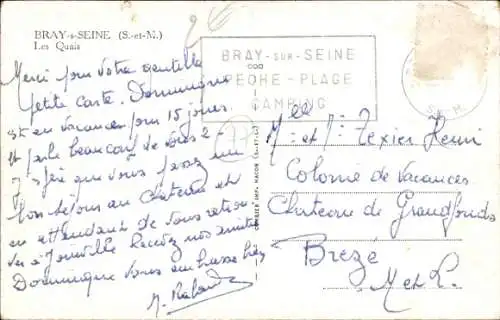 BRAY-s-SEINE (S.-et-M.)
Les Quais
Merci pour votre gentille
petite carte. Dominique
est en vacances pour 15 jours.
et parle beaucoup de vous 2 -
J'espère que vous passez un
bon séjour au Château et
en attendant de vous retrou-
ver à Joinville Recevez nos amitiés
Dominique vous embrasse bien
BRAY-SUR-SEINE
PECHE-PLAGE
CAMPING
77
COMBIER IMP. MACON
Melle et Mr Texier Henri
Colonie de Vacances
Chateau de Grandfonds
Brézé
M et L.